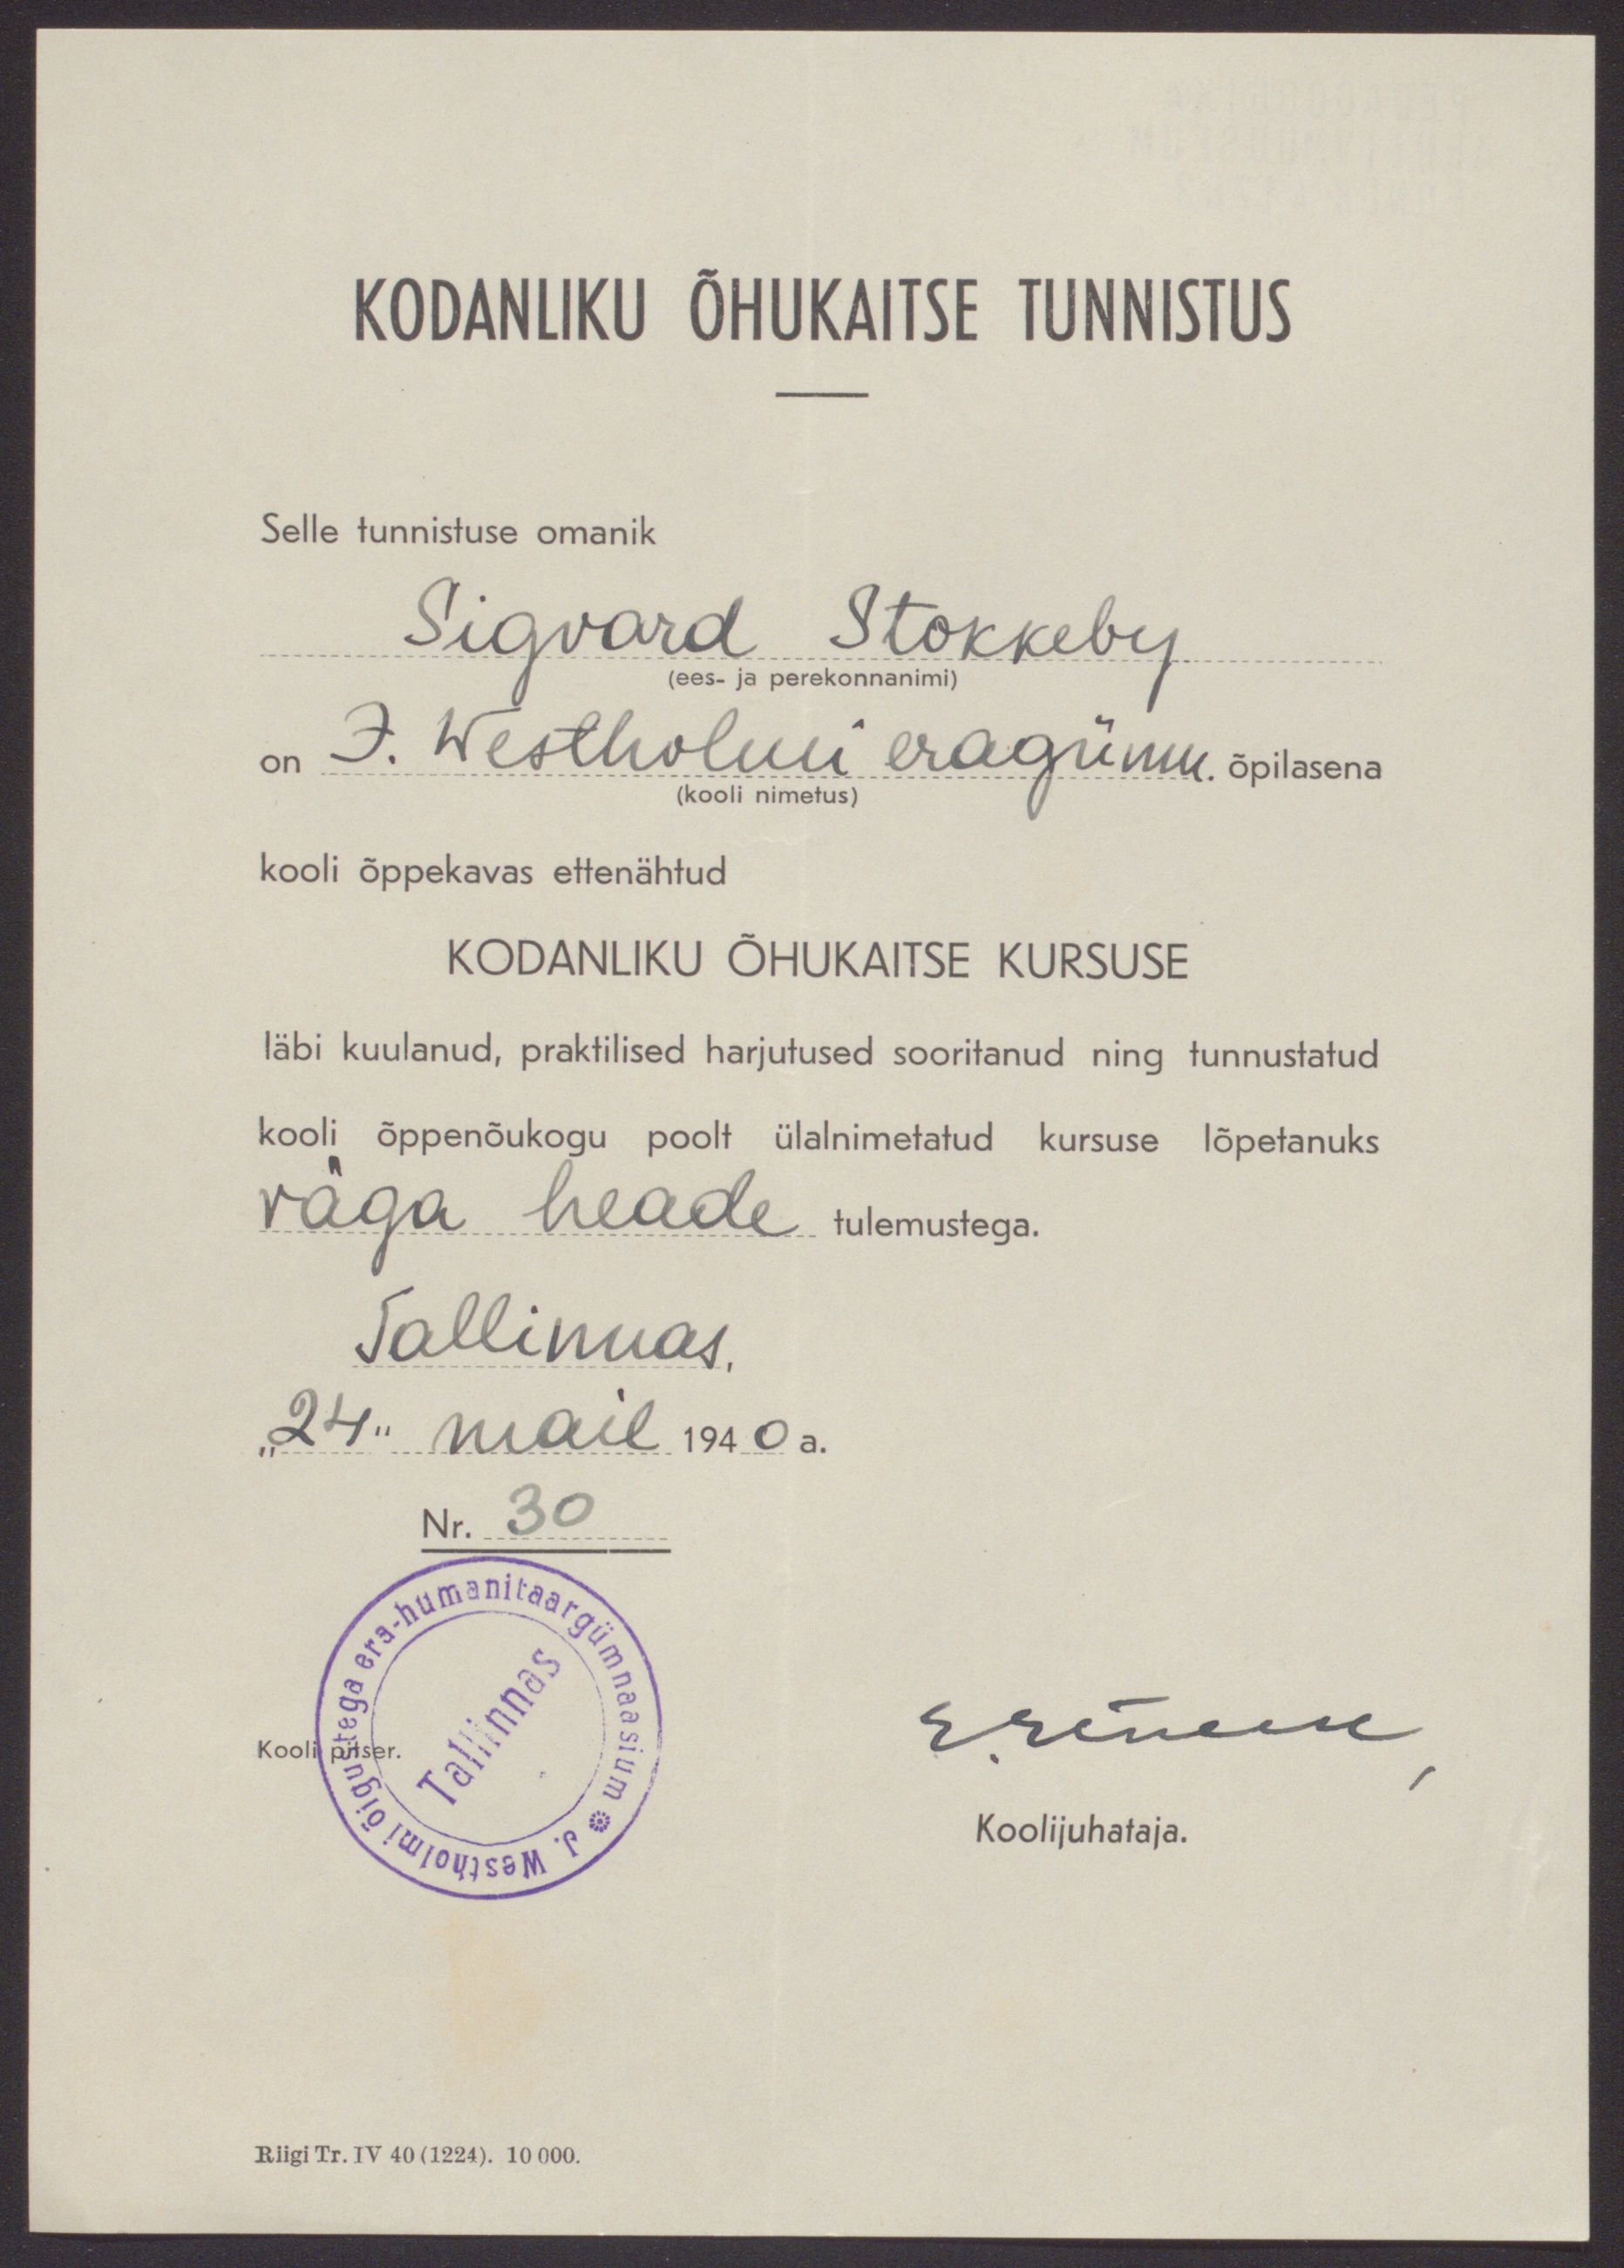 KODANLIKU ÕHUKAITSE TUNNISTUS
Selle tunnistuse omanik
Sigvard Stokkeby
(ees- ja perekonnanimi)
on J. Westholmi eragümn. õpilasena
(kooli nimetus)
kooli õppekavas ettenähtud
KODANLIKU ÕHUKAITSE KURSUSE
läbi kuulanud, praktilised harjutused sooritanud ning tunnustatud
kooli õppenõukogu poolt ülalnimetatud kursuse lõpetanuks
väga heade tulemustega.
Tallinnas,
„24" mail 1940 a.
Nr. 30
J. Westholmi õigustega era-humanitaargümnaasium
Tallinnas
Kooli pitser.
Koolijuhataja.
Riigi Tr. IV 40 (1224). 10 000.